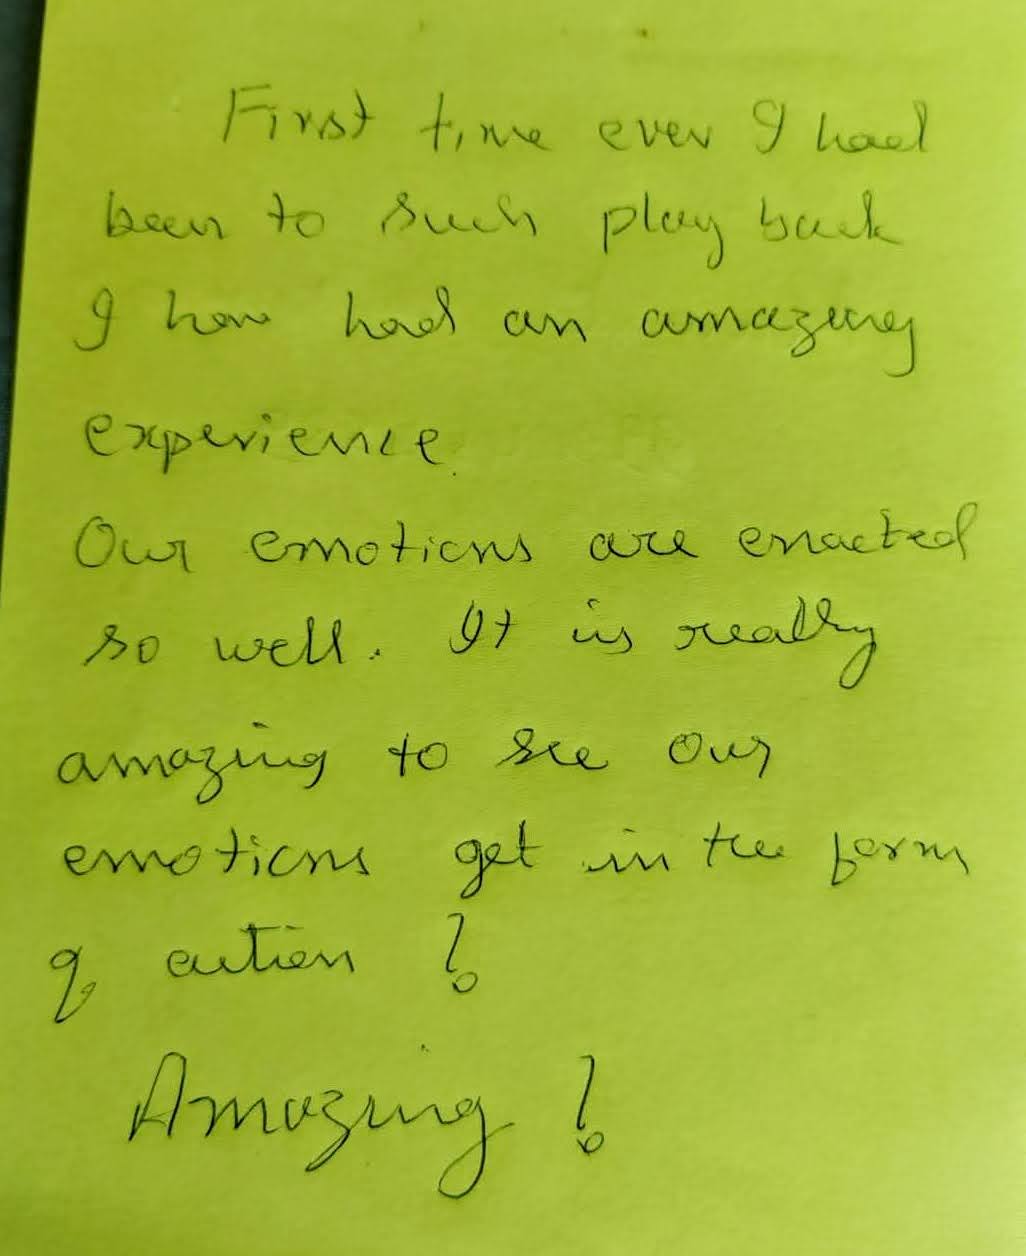 First time ever I had
been to such play back
I have had an amazing
experience.
Our emotions are enacted
so well. It is really
amazing to see our
emotions get in the form
of action !
Amazing !